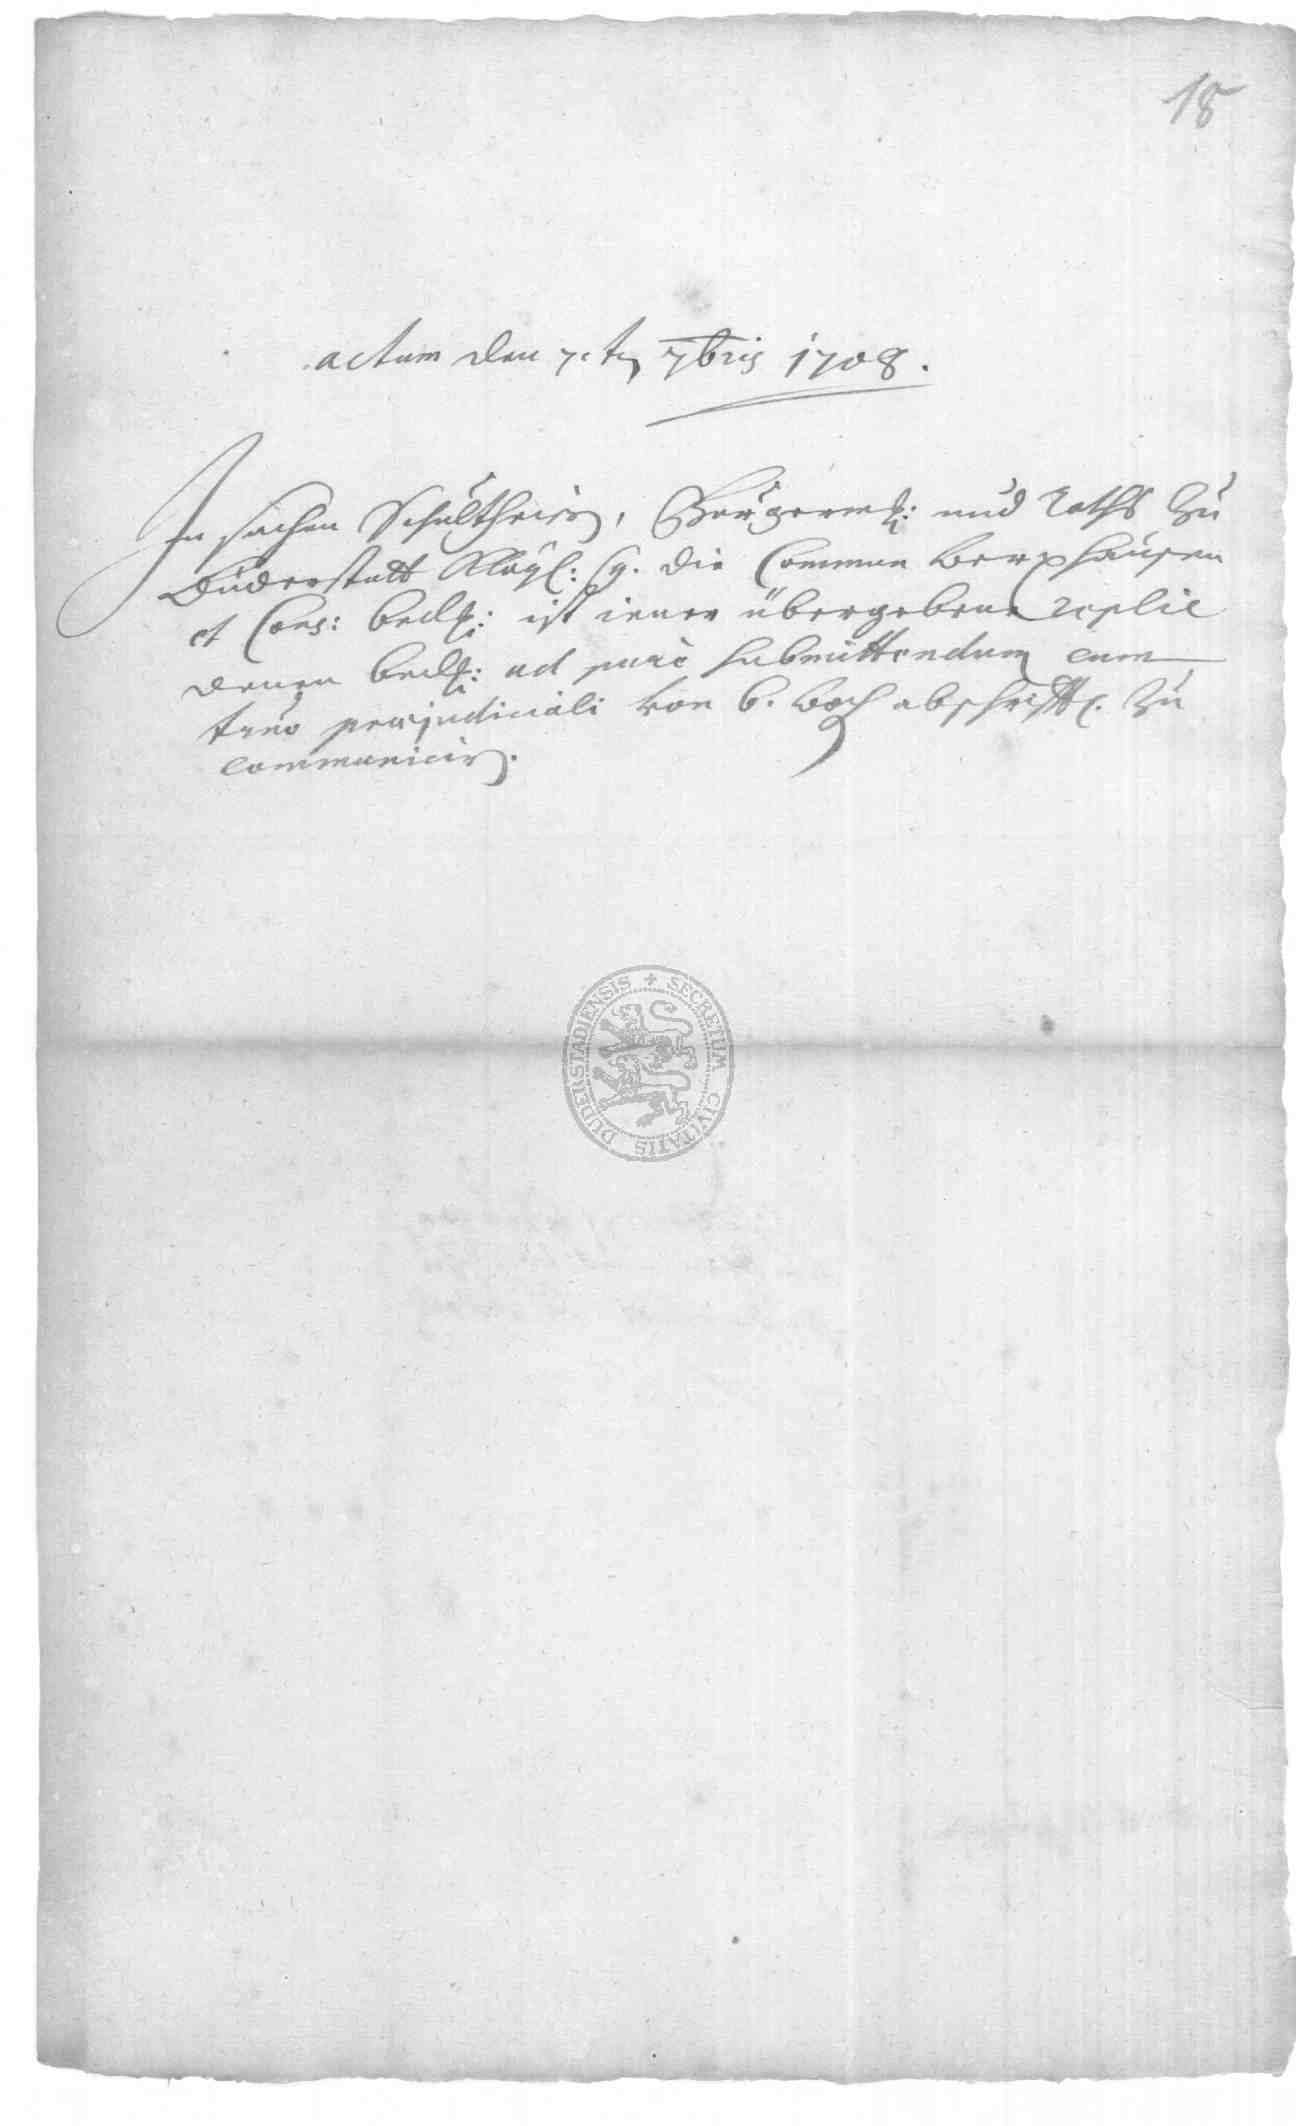 18
actum den 7. ten 7bris 1708.
In sachen Schultheiß, Bürgerm: und Raths zu
Duderstatt Klägl: Cg. die Commun Berxhausen
et Cons: beckl: ist jener übergebene replic
denen beckl: ad purè submittendum cum
tr͞no præjudiciali von 6. woch abschriftl. zu
communicir.
SECRETUM CIVITATIS DUDERSTADIENSIS